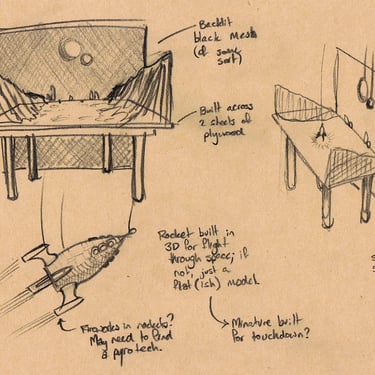 Backlit
black mesh
(of some
sort)
Built across
2 sheets of
plywood
Rocket built in
3D for flight
through space; if
not, just a
flat (ish) model
Fireworks in rockets?
May need to find
a pyrotech.
Minature built
for touchdown?